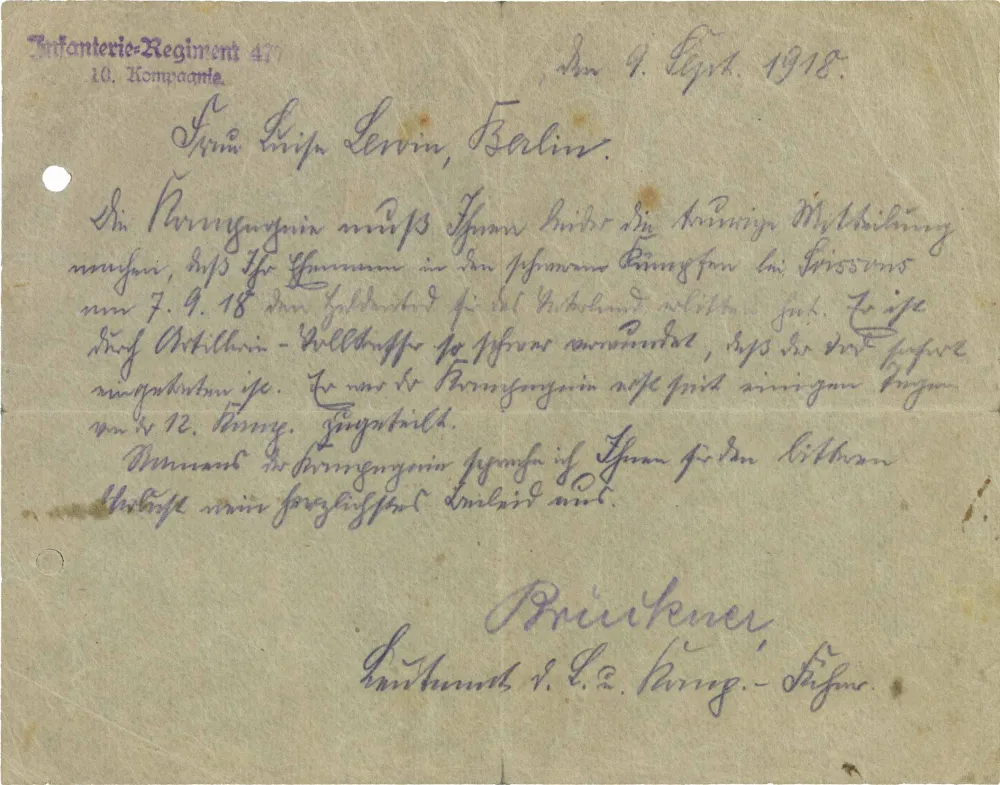 Infanterie-Regiment 47
10. Kompagnie.
den 9. Sept. 1918.
Frau Luise Lewin, Berlin.
Die Kompagnie muß Ihnen leider die traurige Mitteilung
machen, daß Ihr Ehemann in den schweren Kämpfen bei Soissons
am 7. 9. 18 den Heldentod für das Vaterland erlitten hat. Er ist
durch Artillerie-Volltreffer so schwer verwundet, daß der Tod sofort
eingetreten ist. Er war der Kompagnie erst seit einigen Tagen
von der 12. Komp. zugeteilt.
Namens der Kompagnie spreche ich Ihnen für den bitteren
Verlust mein herzlichstes Beileid aus.
Brückner,
Leutnant d. L. u. Komp.-Führer.